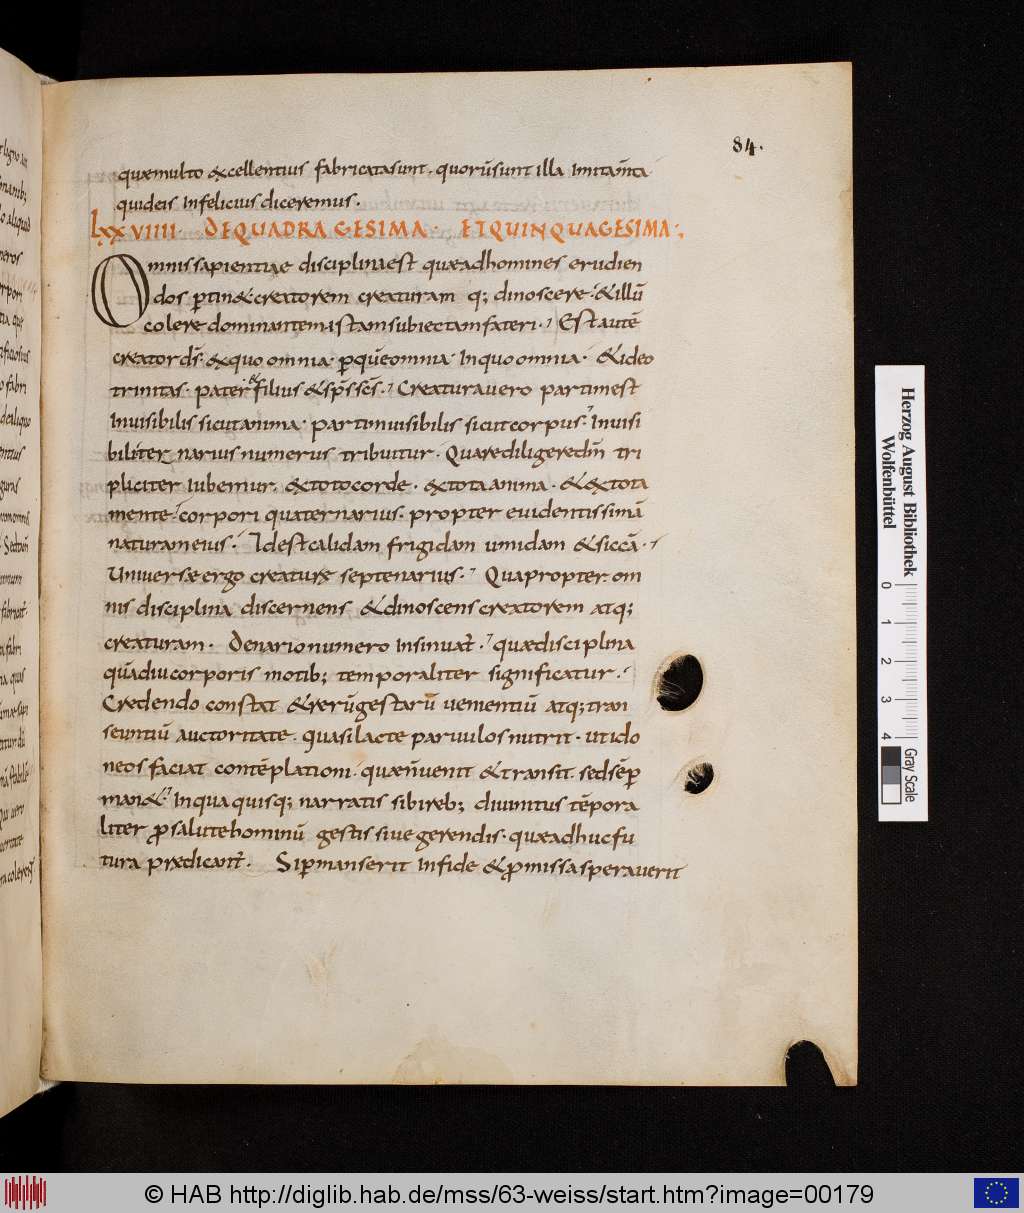 84.
quæmulto excellentius fabricatasunt. quorūsunt illa imitam̄ta
quideis infelicius diceremus.
LXXVIIII DEQUADRAGESIMA. ETQUINQUAGESIMA.
Omnis sapientiae disciplinaest quæadhomines erudien
dos ꝑtin& creatorem creaturam q; dinoscere. &illū
colere dominantem istamsubiectamfateri. Est autē
creator dš. exquo omnia. ꝑquē omnia. Inquo omnia. &ideo
trinitas. pater et filius &spš scš. Creaturavero partimest
Inuisibilis sicutanima. partimuisibilis sicutcorpus. Inuisi
biliter narius numerus tribuitur. Quarediligeredm̄ tri
pliciter iubemur. extotocorde. extotaanima. &extota
mente. corpori quaternarius. propter euidentissimā
naturameius. Idest calidam frigidam umidam &siccā.
Universæ ergo creaturæ septenarius. Quapropter om
nis disciplina discernens &dinoscens creatorem atq;
creaturam. Denario numero insinuat̄. quædisciplina
quādiu corporis motib; temporaliter significatur.
Credendo constat &rerūgestarū uementiū atq; tran
seuntiū auctoritate. quasilacte paruulos nutrit. utido
neos faciat contēplationi. quæn̄uenit &transit. sedsēꝑ
man&. Inqua quisq; narratis sibireb; diuinitus tēpora
liter ꝓsalutehominū gestis siue gerendis. quæadhucfu
tura prædicant̄. Siꝑmanserit infide &ꝓmissasperauerit
Herzog August Bibliothek
Wolfenbüttel
0 1 2 3 4
Gray Scale
© HAB http://diglib.hab.de/mss/63-weiss/start.htm?image=00179